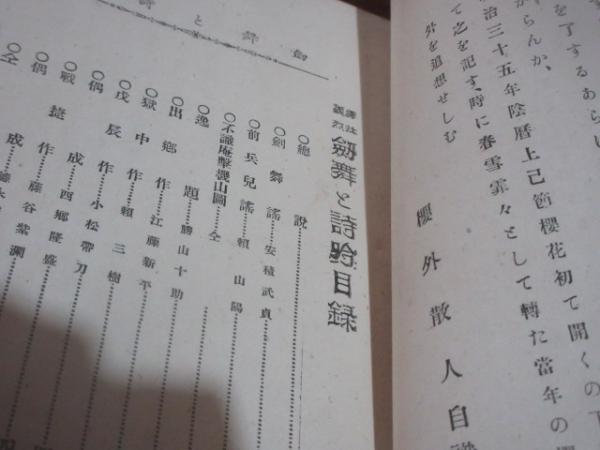 を了するあらし
からんか、
て之を記す、時に春雪霏々として轉た當年の
治三十五年陰暦上已節櫻花初て開くの下
外を追想せしむ
櫻外散人自
劍舞と詩吟目錄
○總說
○劍舞謠………安積武貞
○前兵兒謠………賴山陽
○不識庵擊機山圖………仝
○逸題………勝山十助
○出鄕作………江藤新平
○獄中作………賴三樹
○戊辰作………小松帶刀
○偶成………西鄕隆盛
○戰捷作………藤谷紫瀾
○偶成
○仝